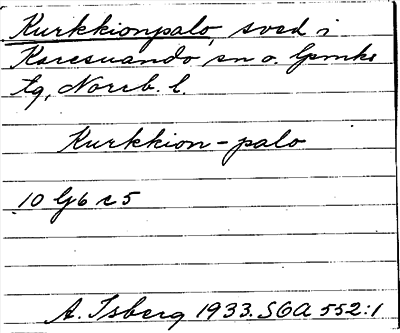 Kurkkionpalo, sved i
Karesuando sn o. lpmks
tg, Norrb. l.
Kurkkion-palo
10 Gj6 c5
A. Isberg 1933. SGA 552:1